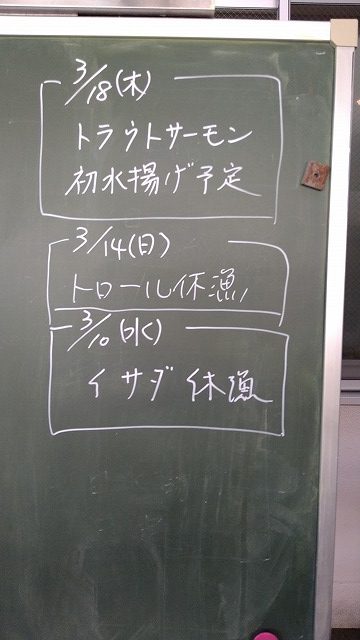 3/18(木)
トラウトサーモン
初水揚げ予定
3/14(日)
トロール休漁
3/10(水)
イサダ休漁